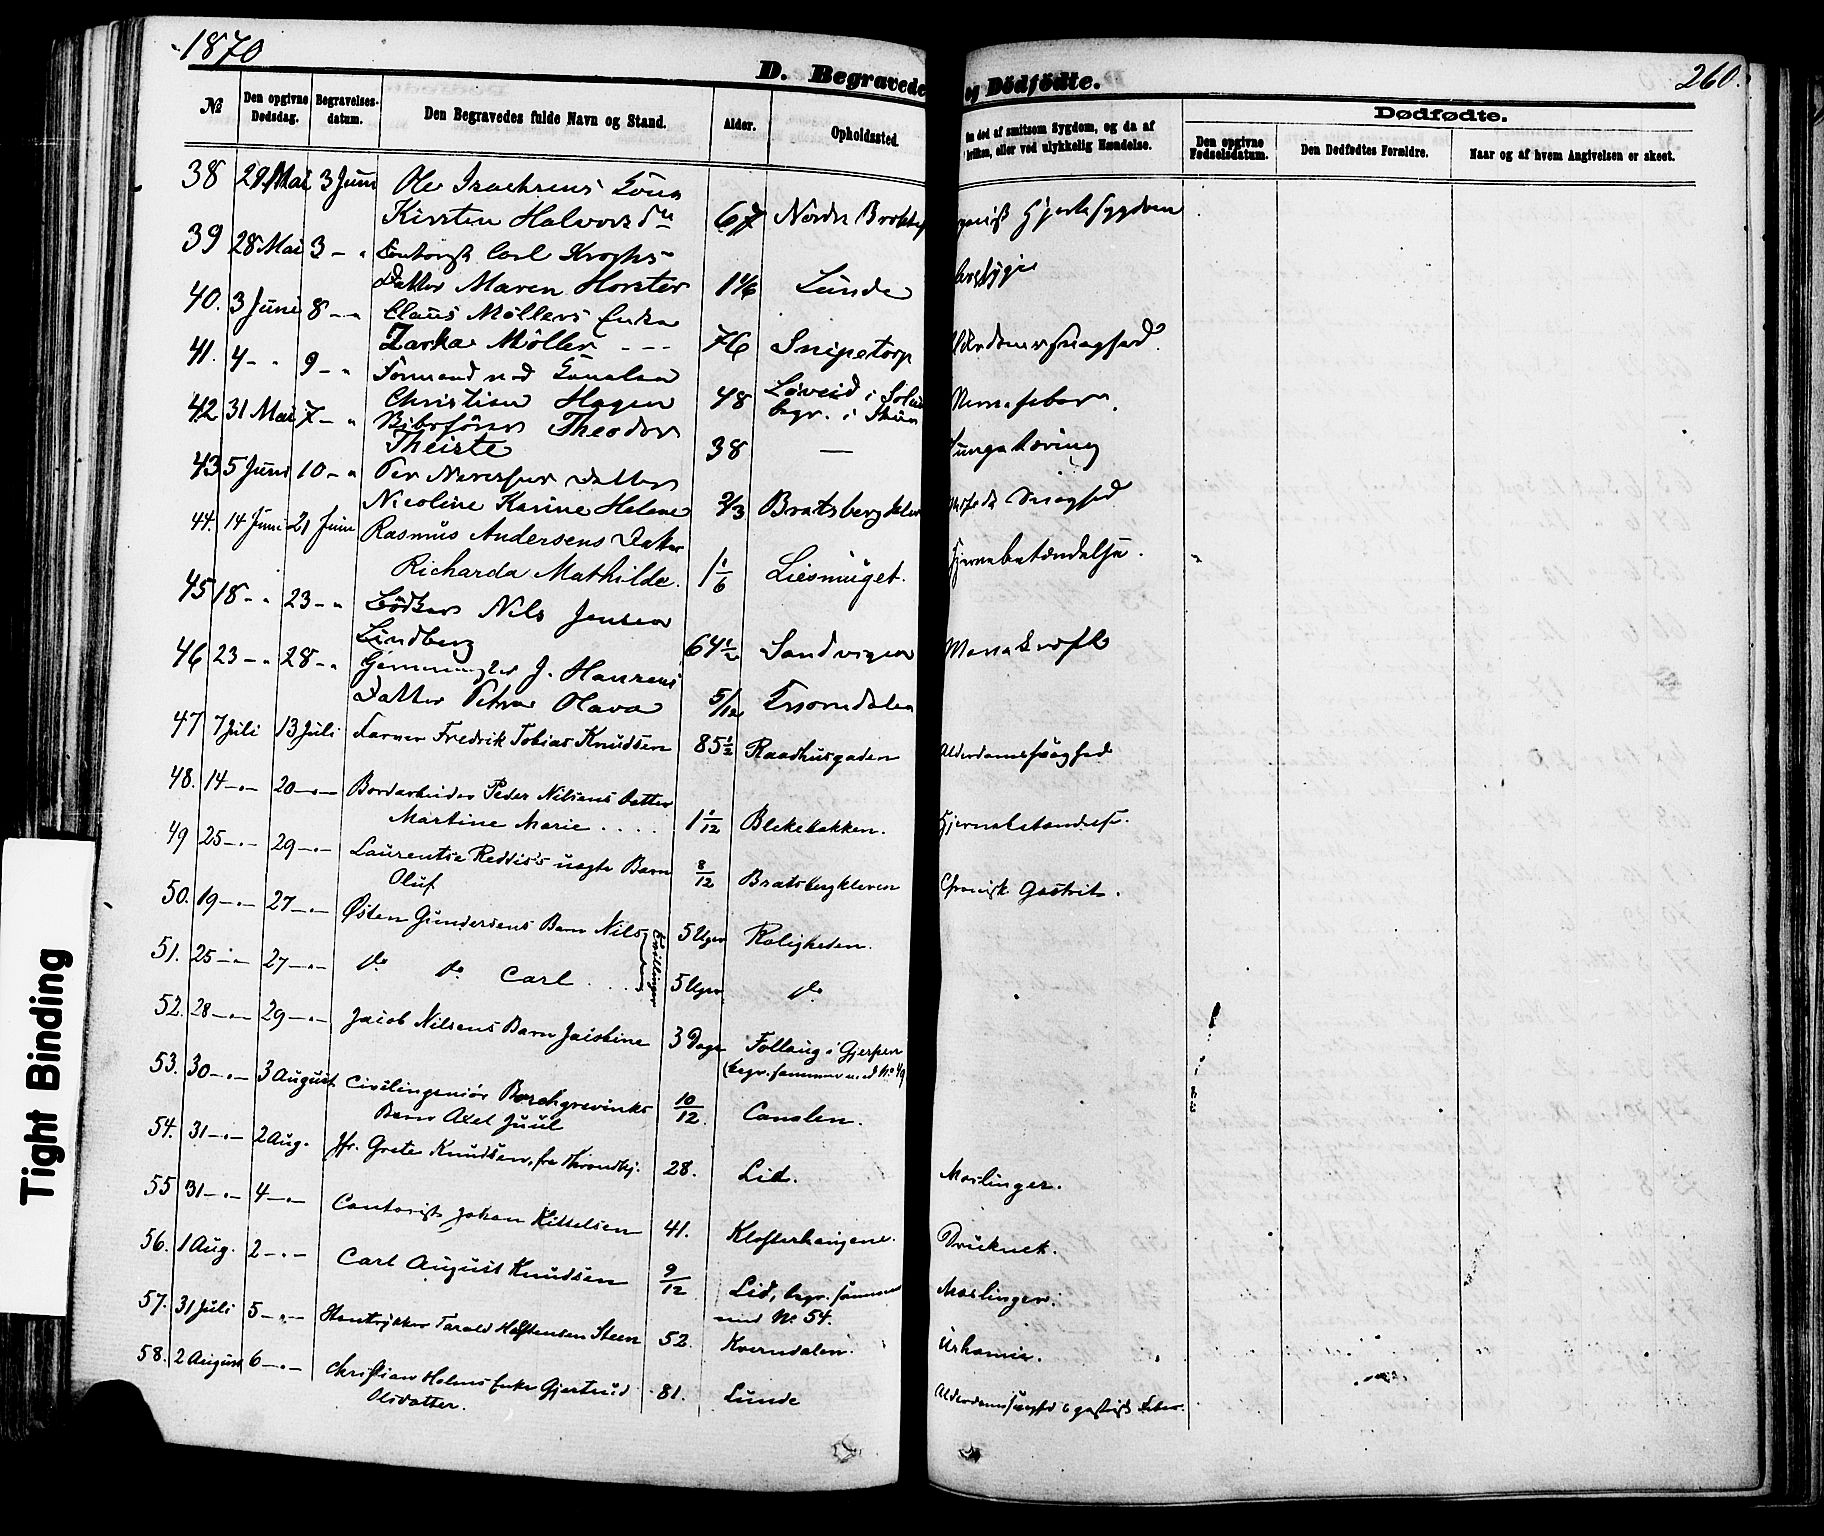 1870
260.
D. Begravede og Dödfödte.
№
Den opgivne Dødsdag.
Begravelses-datum.
Den Begravedes fulde Navn og Stand.
Alder.
Opholdssted.
en død af smitsom Sygdom, og da af
hvilken, eller ved ulykkelig Hændelse.
Dødfødte.
Den opgivne Fødselsdatum.
Den Dødfødtes Forældre.
Naar og af hvem Angivelsen er skeet.
38 29 Mai 3 Juni Ole
Kirsten Halvorsdtr 67 Nordre
39 28 Mai 3 - " Contorist Carl Kroghs
Datter Maren Horster 1 1/6 Lunde
40. 3 Juni 8 - " Claus Møllers Enke
Møller - - - 76 Snipetorp Alderdomssvaghed.
41. 4 - " 9 - " Formand ved
Christian Hagen 48 Løveid i
begr. i Skien
42 31 Mai 7 - " Theodor
Theiste 38 — Lungetæring
43 5 Juni 10 - " Per Datter
Nicoline Karine Helene 2/3 Bratsbergkleven Svaghed
44. 14 Juni 21 Juni Rasmus Andersens Datter
Richarda Mathilde. 1 1/6 Liesmuget. Hjernebetændelse.
45 18 - " 23 - " Bødker Nils Jensen
Lindberg 64 1/2 Sandvigen
46 23 - " 28 - " J. Hansens
Datter Petra Olava 5/12
47 7 Juli 13 Juli Farver Fredrik Tobias Knudsen 85 1/2 Raadhusgaden Alderdomssvaghed
48. 14 - " - 20 - " - Bordarbeider Peder Nilsens Datter
Martine Marie . . . . 1 1/12 Blekebakken. Hjernebetændelse.
49 25 - " - 29 - " - Laurentse Reddis's uægte Barn
Oluf 8/12 Bratsbergkleven Chronisk Gastrit.
50. 19 - " - 27 - " - Østen Gundersens Barn Nils 5 Uger Roligheden.
Tvillinger
51. 25 - " - 27 - " - do do Carl . . . . 5 Uger do
52. 28 - " - 29 - " - Jacob Nilsens Barn Jacobine 3 Dage Follaug i Gjerpen
(begr. sammen med No 49
53. 30 - " - 3 August Civilingeniør Borchgrevinks
Barn Axel Juul 10/12. Canalen.
54. 31 - " - 2 Aug. Jfr. Grete Knudsen, fra Throndhj. 28. Lid. Mæslinger.
55 31 - " - 4 - " - Contorist Johan Kittelsen 41. Klosterhaugene. Druknet.
56. 1 Aug. 2 - " - Carl August Knudsen 9/12 Lid, begr. sammen
med No 54. Mæslinger.
57. 31 Juli 5 - " - Tarald Halstensen Steen 52. Kverndalen. Urhæmie.
58. 2 August 6 - " - Christian Holms Enke Gjertrud
Olsdatter. 81. Lunde Alderdomssvaghd & gastrisk Feber.
Tight Binding